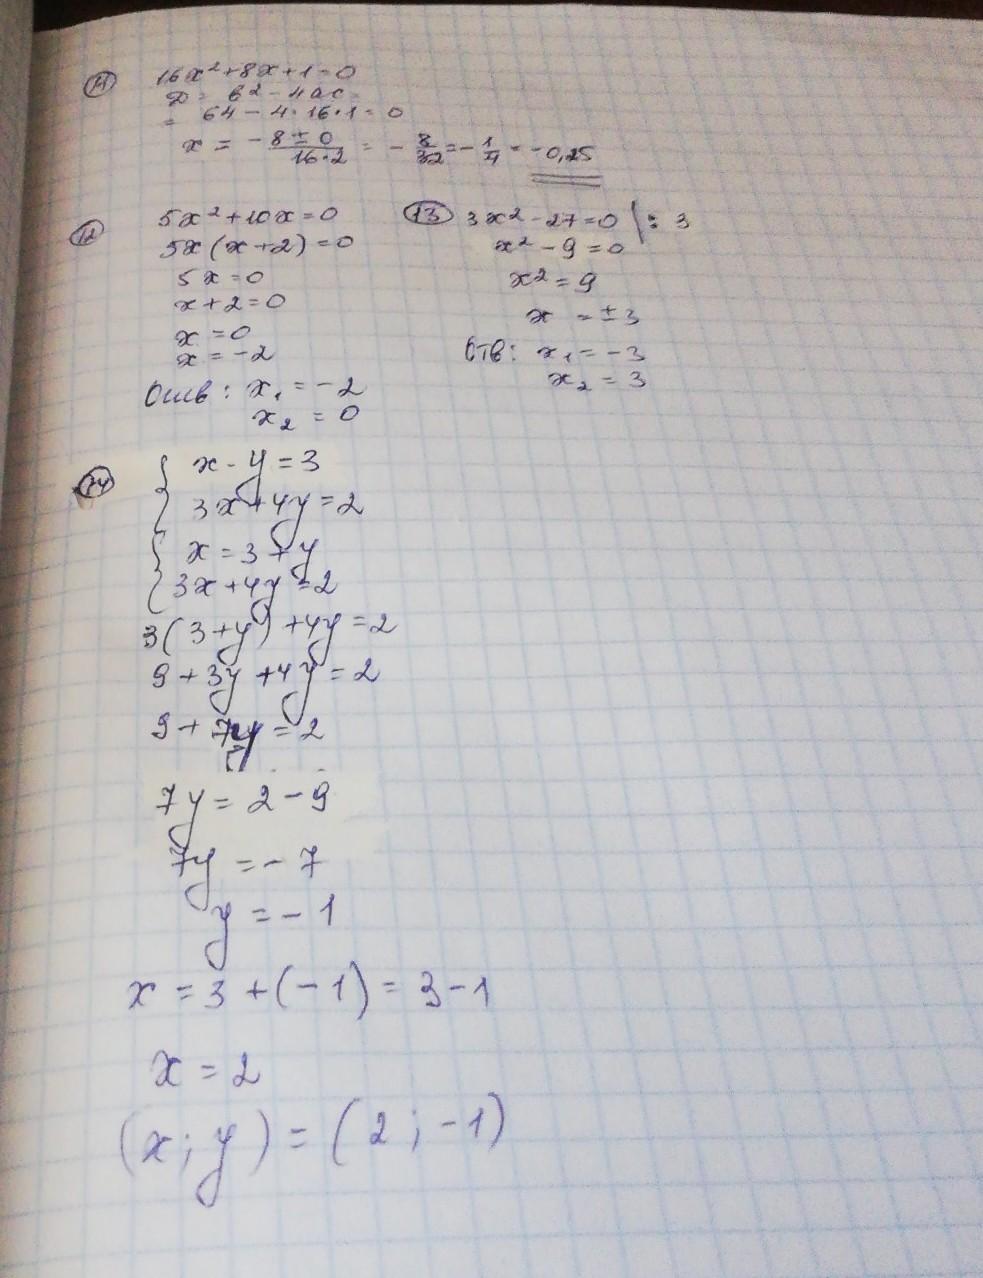 11 16x²+8x+1=0
D = b² - 4ac =
= 64 - 4·16·1 = 0
x = -8±0/16·2 = -8/32 = -1/4 = -0,25
12 5x²+10x=0
5x(x+2)=0
5x=0
x+2=0
x=0
x=-2
Отв: x₁ = -2
x₂ = 0
13 3x²-27=0 | : 3
x²-9=0
x²=9
x = ±3
Отв: x₁ = -3
x₂ = 3
14 { x-y=3
3x+4y=2
{ x=3+y
3x+4y=2
3(3+y)+4y=2
9+3y+4y=2
9+7y=2
7y=2-9
7y=-7
y=-1
x=3+(-1)=3-1
x=2
(x;y)=(2;-1)